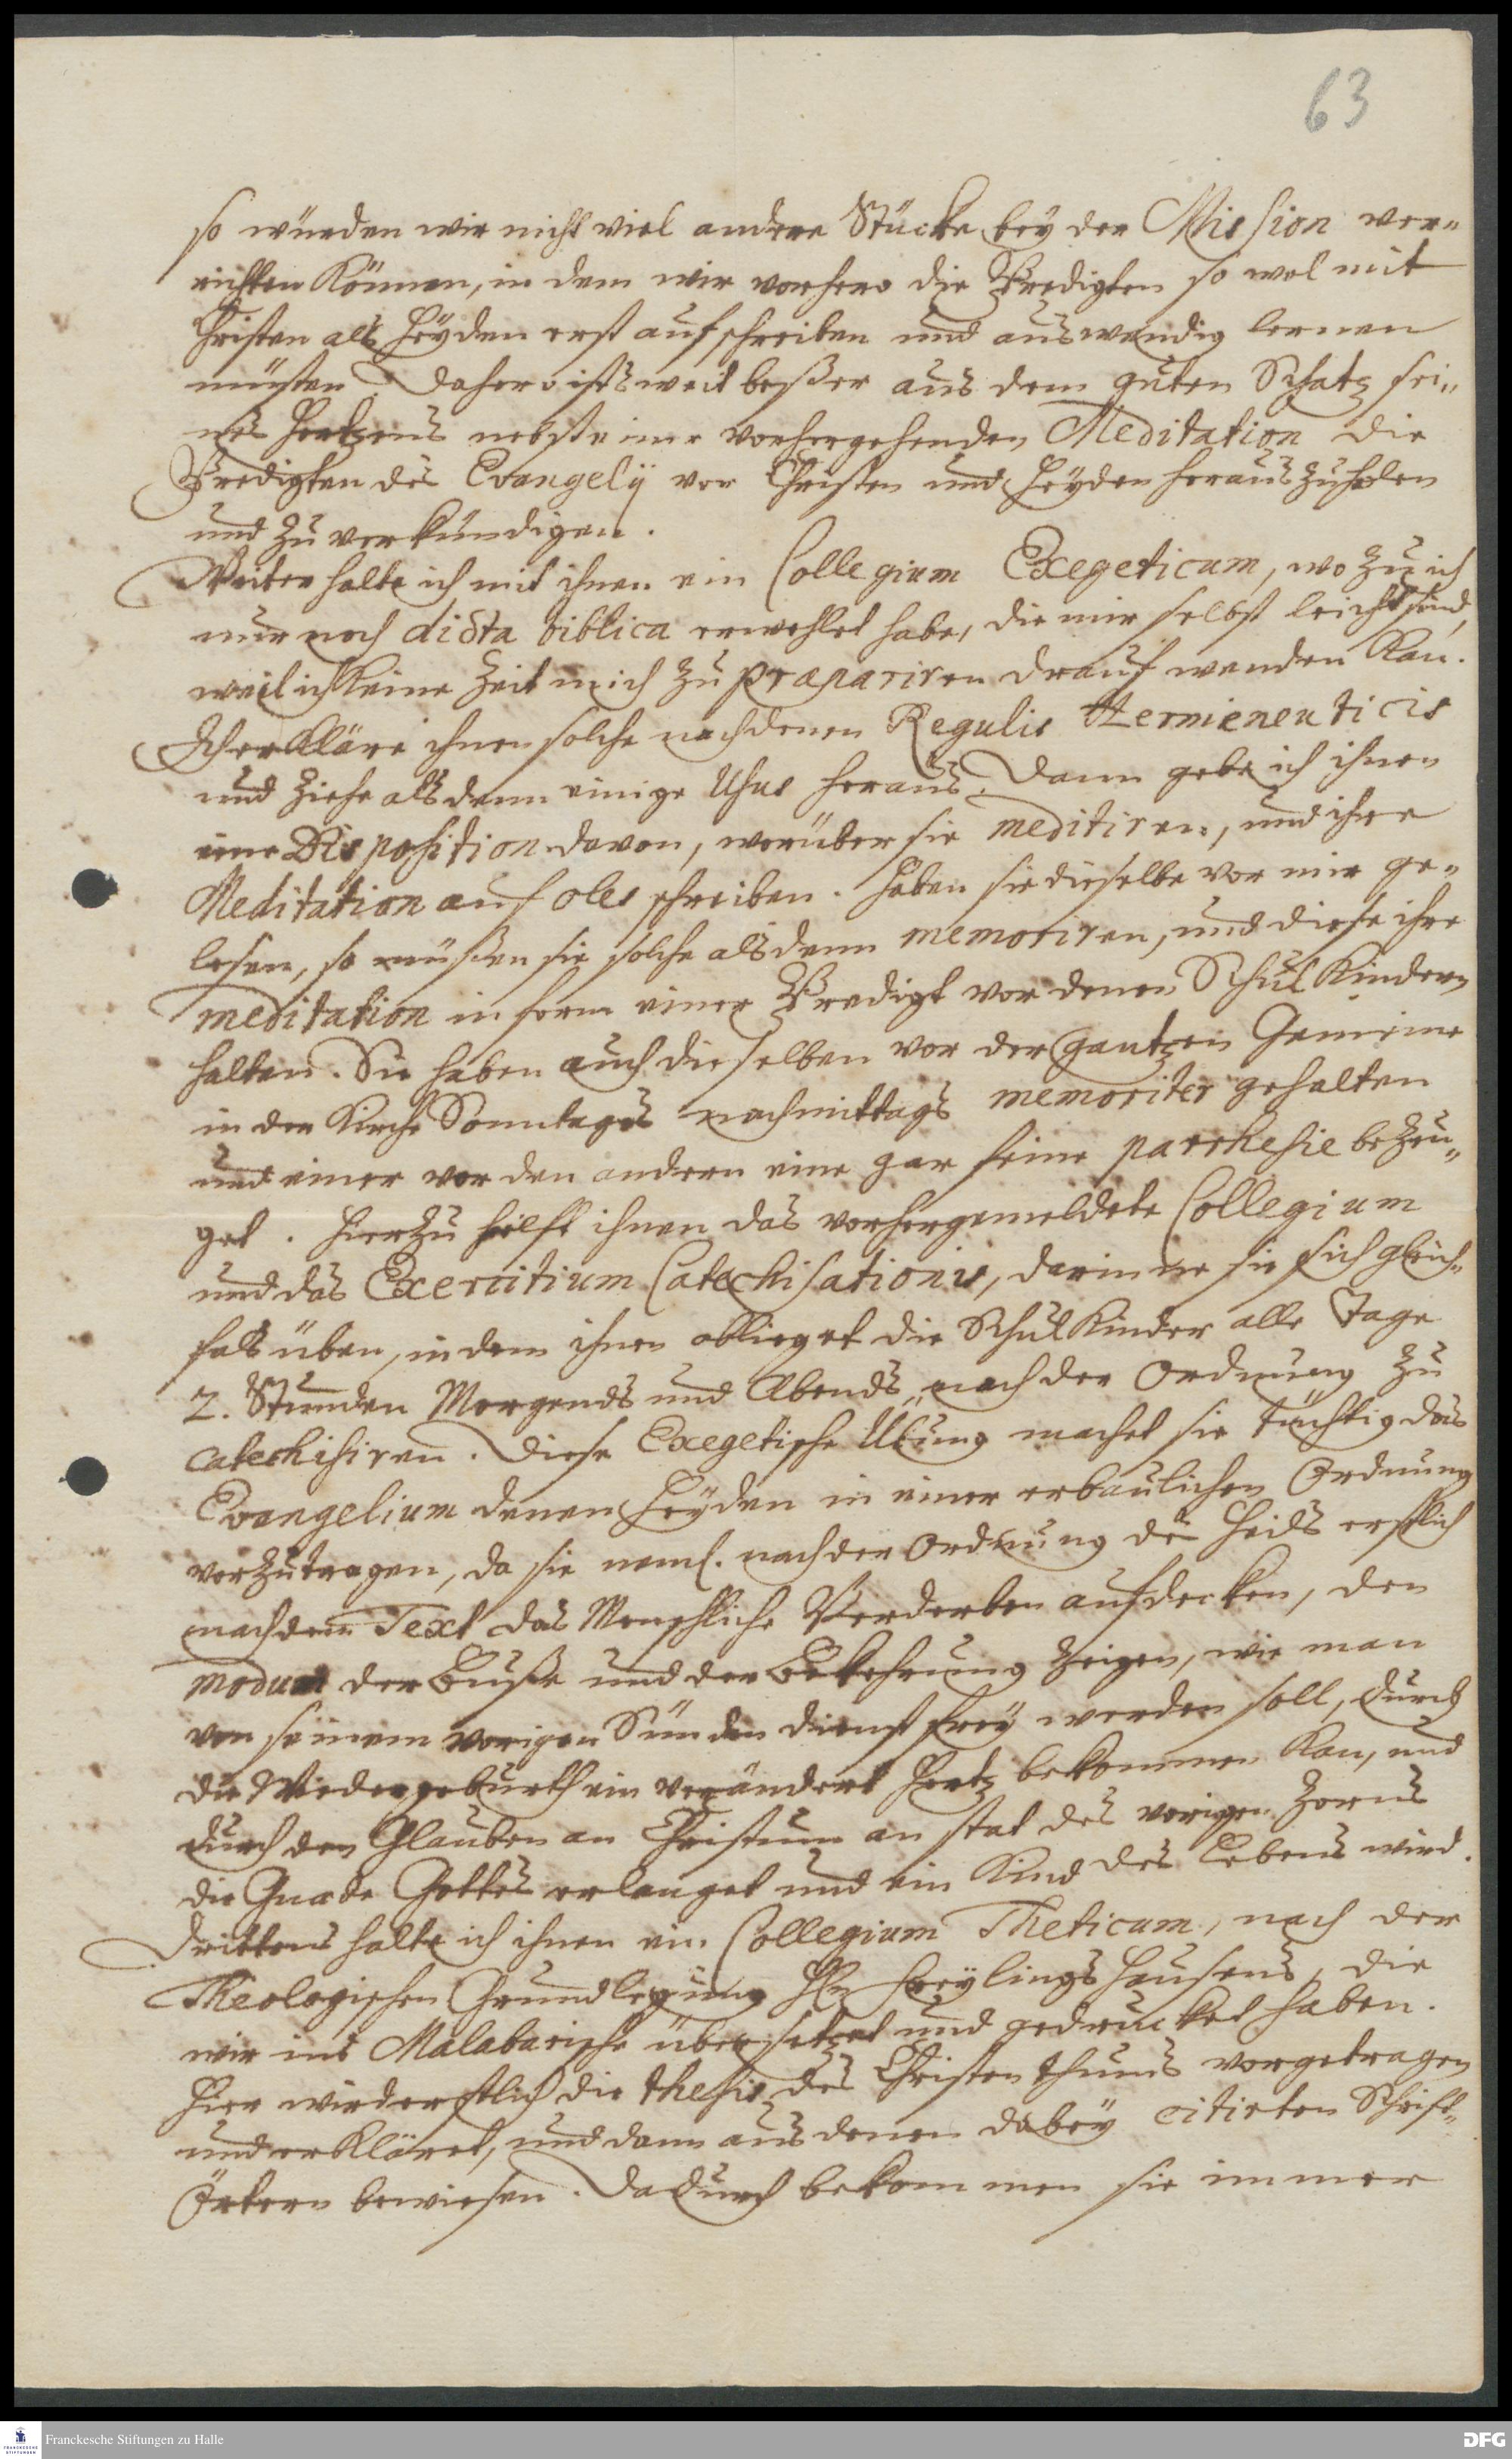 63
so würden wir nicht viel andere Stücke bey der Mission ver-
richten Können, in dem wir vorhero die Predigten so wol mit
Christen als Heyden erst aufschreiben und auswendig lernen
müsten. Dahero ists weit beßer aus dem guten Schatz sei-
nes Hertzens nebst einer vorhergehenden Meditation die
Predigten des Evangelÿ vor Christen und Heyden heraus zu holen
und zu verkündigen.
Weiter halte ich mit ihnen ein Collegium Exegeticum, wo zu ich
nur noch dicta biblica erwehlet habe, die mir selbst leicht sind,
weil ich Keine Zeit mich zu præpariren drauf wenden Kan.
Ich erkläre ihnen solche nach denen Regulis Hermieneuticis
und ziehe alsdenn einige Usus heraus. Dann gebe ich ihnen
eine Disposition davon, worüber sie meditiren, und ihre
Meditation auf oles schreiben. Haben sie dieselbe vor mir ge-
lesen, so müßen sie solche alsdenn memoriren, und diese ihre
meditation in form einer Predigt vor denen Schul Kindern
halten. Sie haben auch dieselben vor der gantzen Gemeine
in der Kirche Sonntages nachmittags memoriter gehalten
und einer vor den andern eine gar feine parrhesie bezeu-
get. Hierzu hilft ihnen das vorhergemeldete Collegium
und das Exercitium Catechisationis, darinne sie sich gleich-
fals üben, in dem ihnen oblieget die Schul Kinder alle Tage
2. Stunden Morgends und Abends nach der Ordnung zu
catechisiren. Diese Exegetische Übung machet sie tüchtig das
Evangelium denen Heyden in einer erbaulichen Ordnung
vorzutragen, da sie neml. nach der Ordnung des Heils erstlich
nach dem Text das Menschliche Verderben aufdecken, den
modum der Buße und der Bekehrung zeigen, wie man
von seinem vorigen Sünden dienst frey werden soll, durch
die Wiedergeburth ein verändert Hertz bekommen Kan, und
durch den Glauben an Christum an stat des vorigen Zorns
die Gnade Gottes erlanget und ein Kind des Lebens wird.
Drittens halte ich ihnen ein Collegium Theticum, nach der
Theologischen Grundlegung Hn Freylings Hausens, die
wir ins Malabarische übersetzet und gedrucket haben.
Hier wird erstlich die thesis des Christenthums vorgetragen
und erkläret, und dann aus denen dabey citirten Schrift-
Örtern bewiesen. Dadurch bekommen sie immer
Franckesche Stiftungen zu Halle
DFG